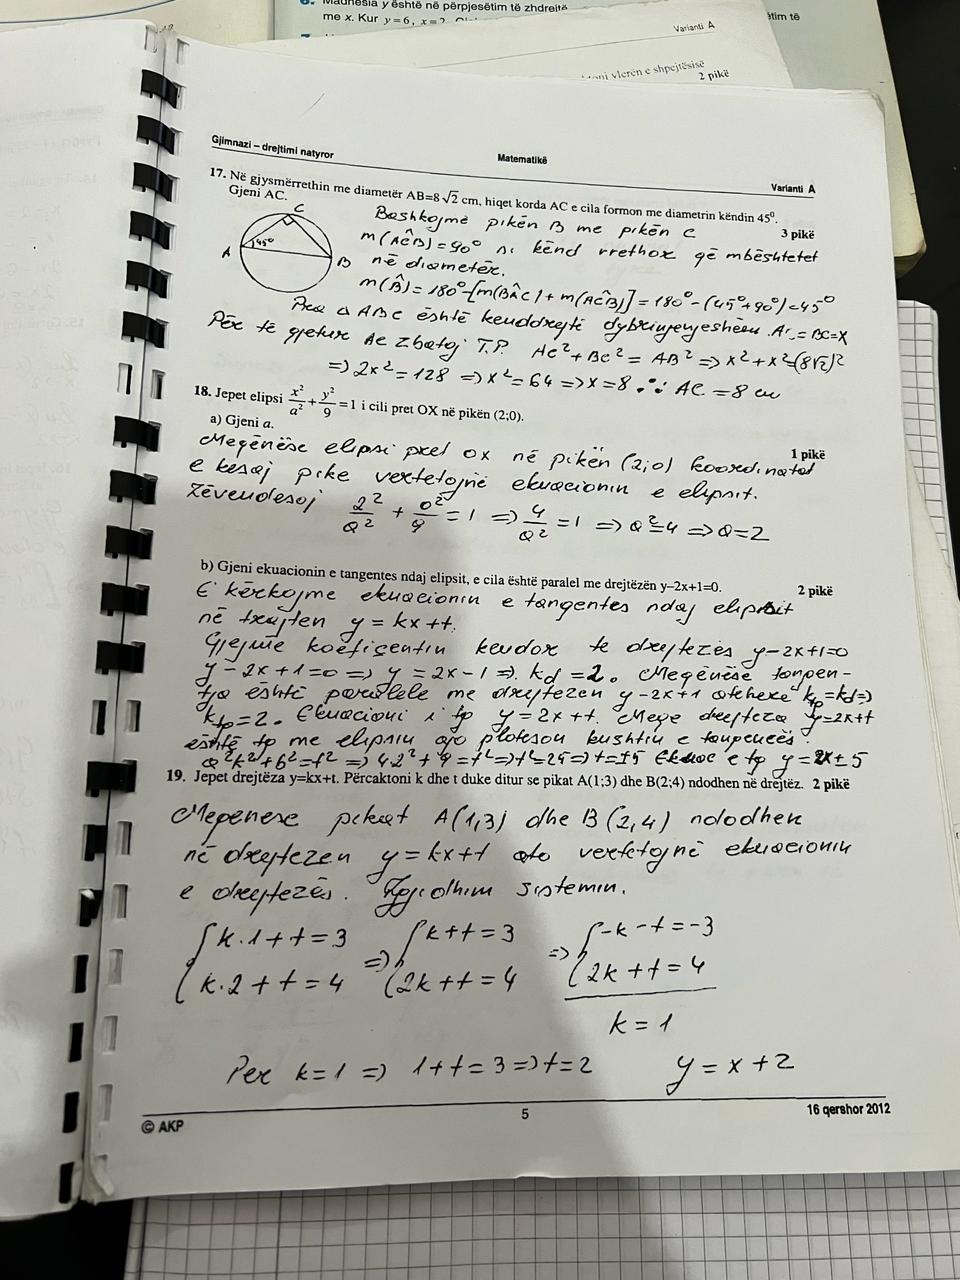 me x. Kur y = 6, x = 2
Varianti A
ëtim të
vlerën e shpejtësisë
2 pikë
Gjimnazi – drejtimi natyror
Matematikë
Varianti A
17. Në gjysmërrethin me diametër AB=8√2 cm, hiqet korda AC e cila formon me diametrin këndin 45⁰.
Gjeni AC.
3 pikë
C
A
45°
B
Bashkojmë pikën B me pikën C
m(AĈB)=90° si kënd rrethor që mbështetet
në diametër.
m(B̂)=180°-[m(BÂC)+m(AĈB)]=180°-(45°+90°)=45°
Pra △ ABC është kënddrejtë dybrinjenjëshëm. AC=BC=x
Për të gjetur AC zbatoj T.P. AC²+BC²=AB² => x²+x²=(8√2)²
=> 2x²=128 => x²=64 => x=8 ∴ AC=8 cm
18. Jepet elipsi x²/a² + y²/9 = 1 i cili pret OX në pikën (2;0).
a) Gjeni a.
1 pikë
Meqënëse elipsi pret OX në pikën (2;0) koordinatat
e kësaj pike vërtetojnë ekuacionin e elipsit.
Zëvendësoj 2²/a² + 0²/9 = 1 => 4/a² = 1 => a²=4 => a=2
b) Gjeni ekuacionin e tangentes ndaj elipsit, e cila është paralel me drejtëzën y–2x+1=0.
2 pikë
E kërkojmë ekuacionin e tangentes ndaj elipsit
në trajten y = kx+t.
Gjejmë koeficentin kendor te drejtezës y-2x+1=0
y-2x+1=0 => y=2x-1 => kd=2. Meqënëse tangen-
tja është paralele me drejtezen y-2x+1 atehere ktg=kd=>
ktg=2. Ekuacioni i tg y=2x+t. Meqe drejteza y=2x+t
është tg me elipsin ajo ploteson kushtin e tangencës.
a²k²+b²=t² => 4·2²+9=t² => t²=25 => t=±5 Ekuac e tg y=2x±5
19. Jepet drejtëza y=kx+t. Përcaktoni k dhe t duke ditur se pikat A(1;3) dhe B(2;4) ndodhen në drejtëz. 2 pikë
Meqenese pikat A(1,3) dhe B(2,4) ndodhen
në drejtezen y=kx+t ato vertetojnë ekuacionin
e drejtezës. Zgjidhim sistemin.
{k·1+t=3 => {k+t=3 => {-k-t=-3
{k·2+t=4 {2k+t=4 {2k+t=4
k=1
Per k=1 => 1+t=3 => t=2 y=x+2
© AKP
5
16 qershor 2012